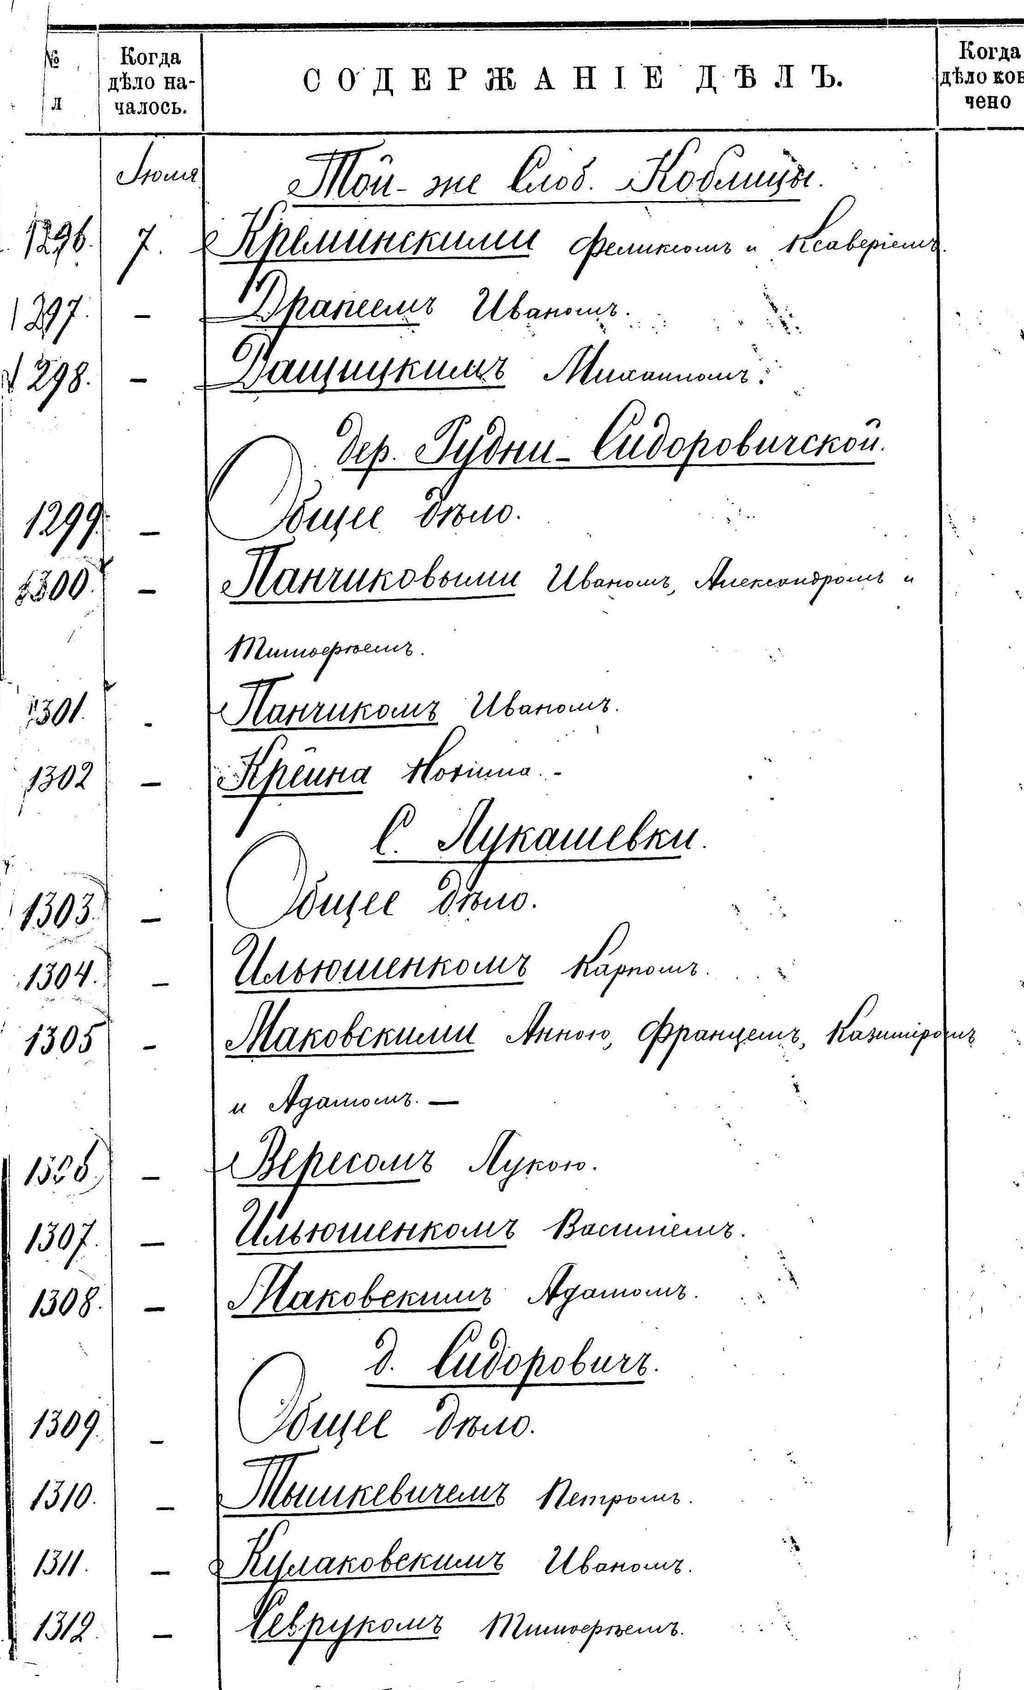 № л
Когда дѣло на-чалось.
СОДЕРЖАНІЕ ДѢЛЪ.
Когда дѣло кон чено
Іюля Той-же Слоб. Коблицы.
1296. 7. Креминскими Феликсомъ и Ксаверіемъ.
1297. — Драпеемъ Иваномъ.
1298. — Дащицкимъ Михаиломъ.
дер. Рудни-Сидоровичской.
1299. — Общее дѣло.
1300. — Панчиковыми Иваномъ, Александромъ и
Тимоѳеемъ.
1301. - Панчикомъ Иваномъ.
1302 — Крейна
С. Лукашевки.
1303. — Общее дѣло.
1304. — Ильюшенкомъ Карпомъ.
1305 — Маковскими Анною, Францемъ, Казиміромъ
и Адамомъ. —
1306. — Вересомъ Лукою.
1307. — Ильюшенкомъ Василіемъ.
1308. — Маковскимъ Адамомъ.
д. Сидоровичъ.
1309. — Общее дѣло.
1310. — Тышкевичемъ Петромъ.
1311. — Кулаковскимъ Иваномъ.
1312. — Севрукомъ Тимоѳеемъ.